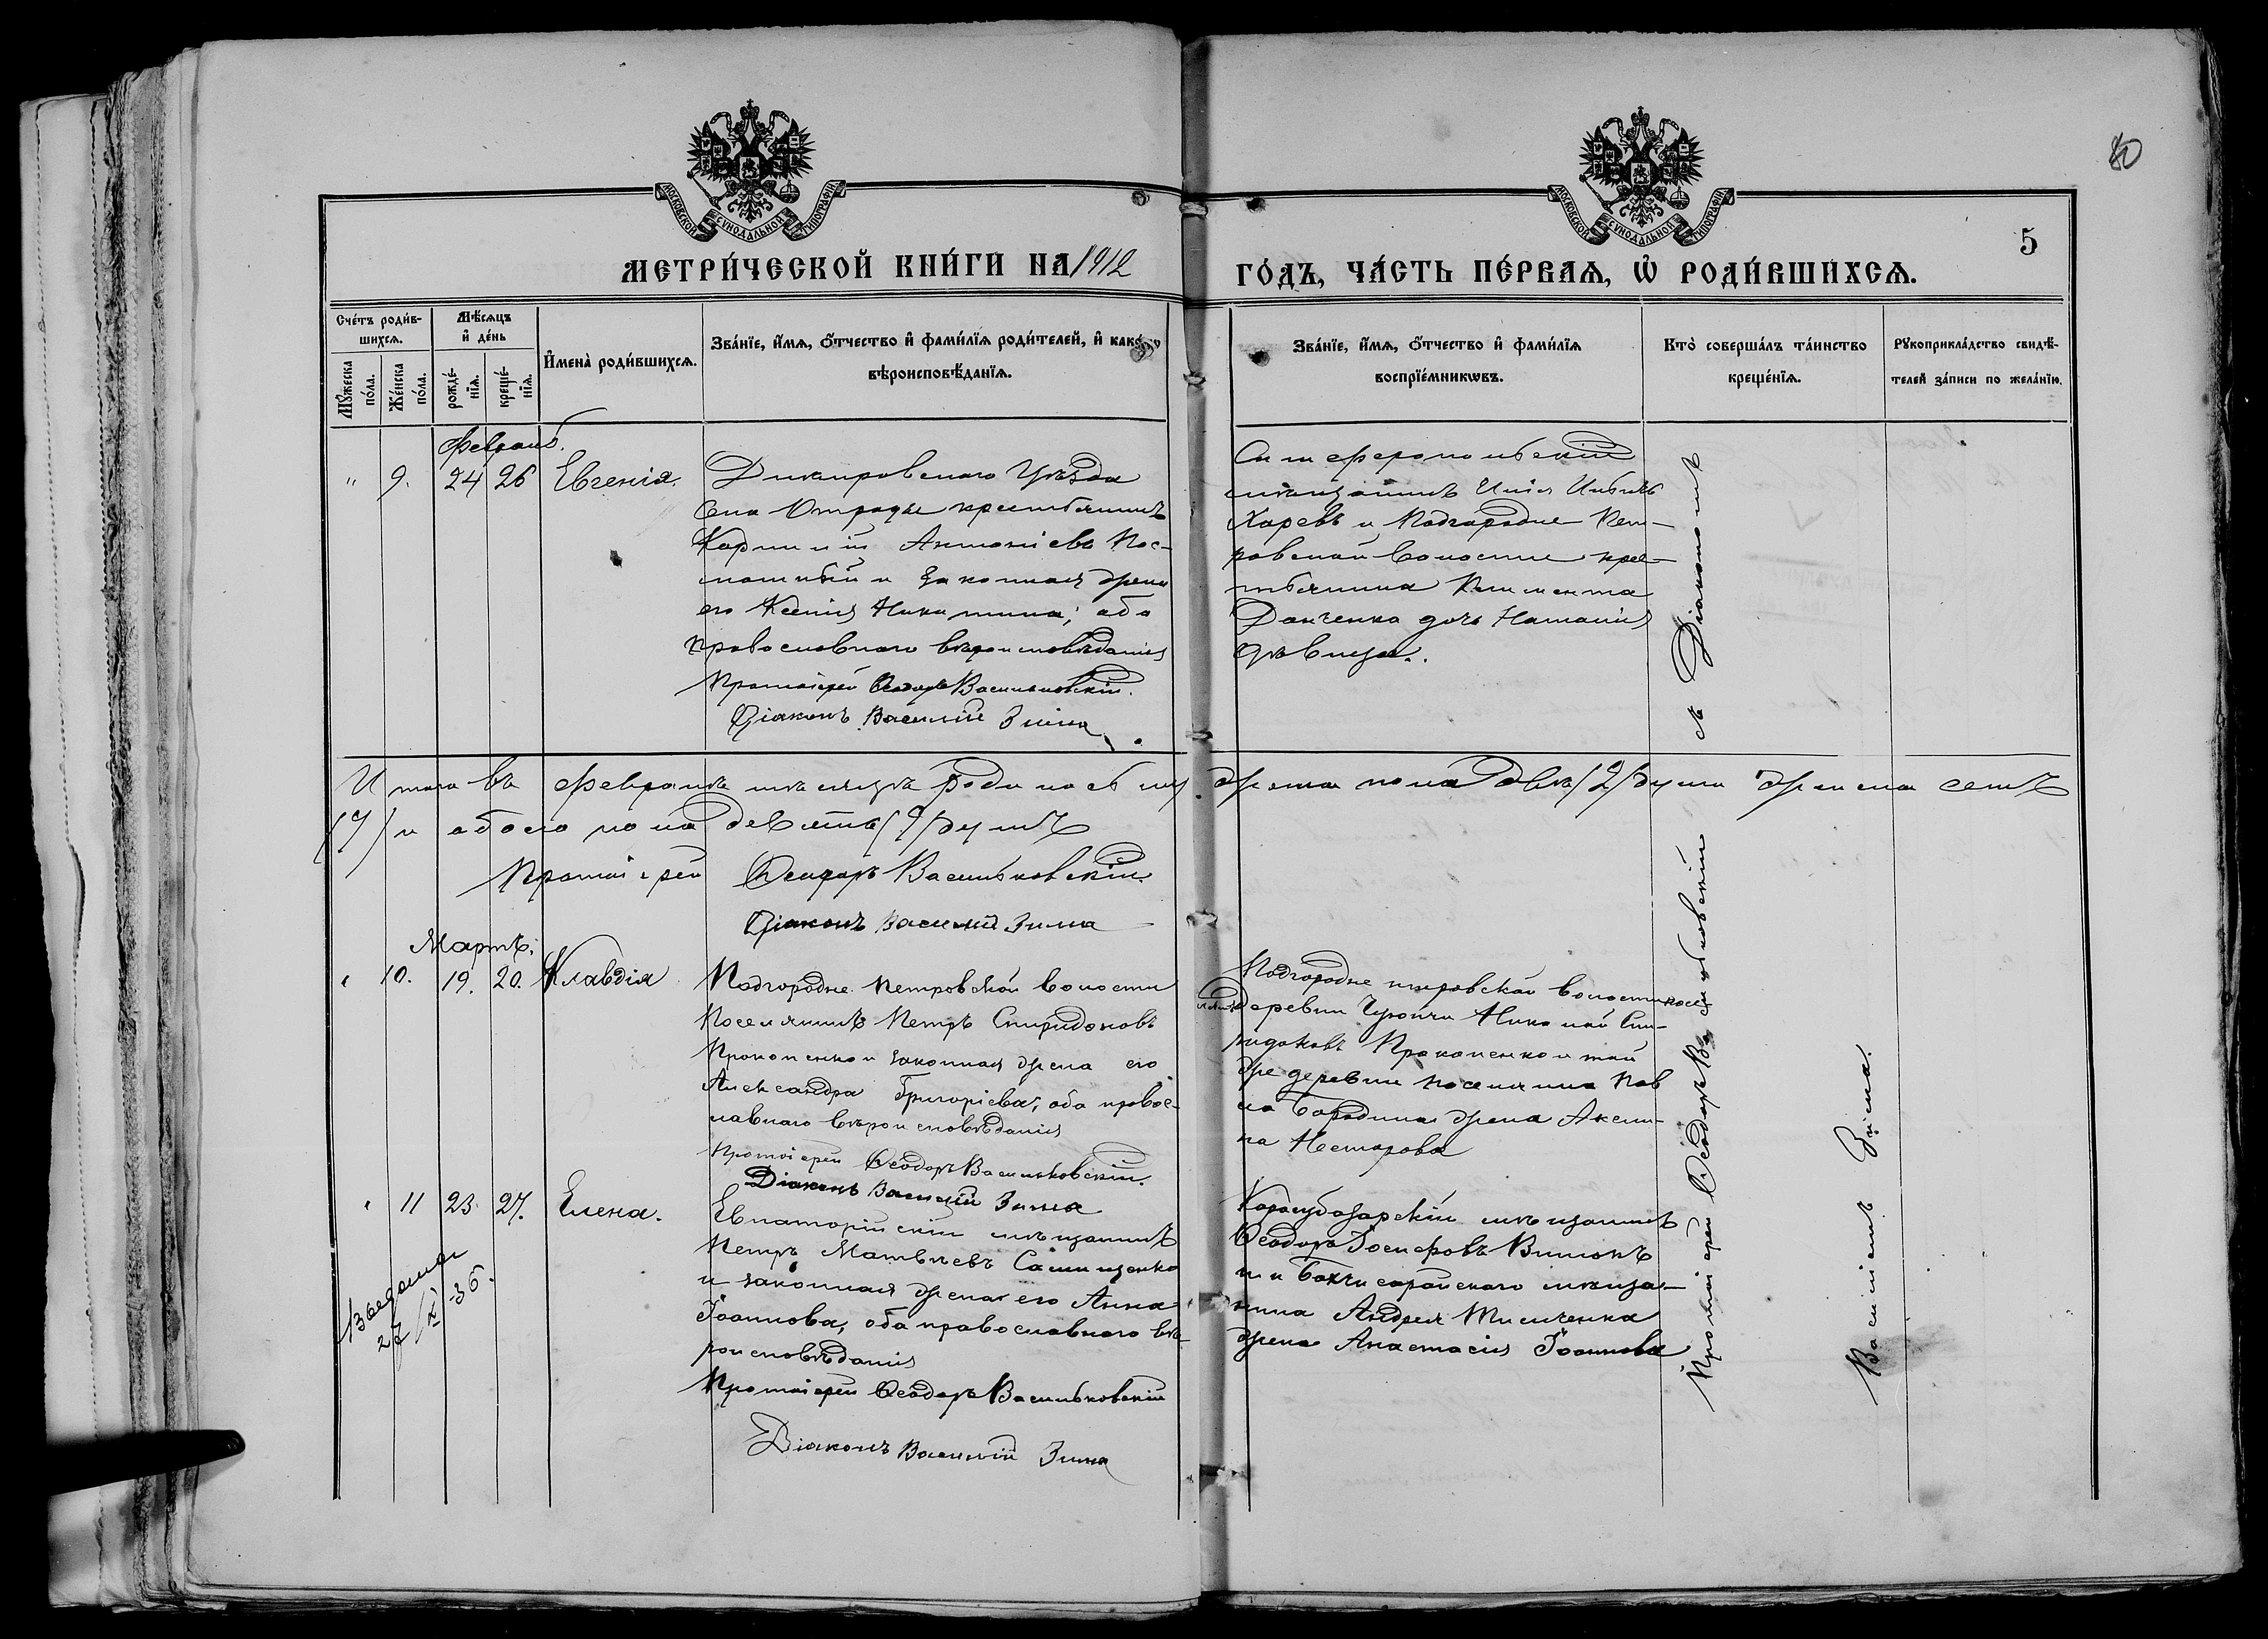 80
МОСКОВСКОЙ СѴНОДАЛЬНОЙ ТИПОГРАФІИ
МОСКОВСКОЙ СѴНОДАЛЬНОЙ ТИПОГРАФІИ
5
МЕТРИ́ЧЕСКОЙ КНИ́ГИ НА 1912
ГО́ДЪ, ЧА́СТЬ ПЕ́РВАѦ, Ѽ РОДИ́ВШИХСѦ.
Сче́тъ роди́в-
шихсѧ.
Мꙋ́жеска
по́ла.
Же́нска
по́ла.
Мѣ́сѧцъ
и҆ де́нь
рожде́-
нїѧ.
креще́-
нїѧ.
И҆мена̀ роди́вшихсѧ.
Зва́нїе, и҆́мѧ, ѻ҆́тчество и҆ фами́лїѧ роди́телей, и҆ како́гѡ
вѣроисповѣ́данїѧ.
Зва́нїе, и҆́мѧ, ѻ҆́тчество и҆ фами́лїѧ
воспрїе́мникѡвъ.
Кто̀ соверша́лъ та́инство
креще́нїѧ.
Рꙋкоприкла́дство свидѣ́-
телей за́писи по жела́нїю.
Февраль.
" 9. 24 26 Евгенія.
Днѣпровскаго Уѣзда
села Отрады крестьянинъ
Антоніевъ Пос-
и законная жена
его Ксенія Никитина; оба
православнаго вѣроисповѣданія
Протоіерей Ѳеодоръ Васильковскій.
Діаконъ Василій Зима
Симферопольскій
мѣщанинъ Илія
Харевъ и Подгородне Пет-
ровской волости кре-
стьянина Климента
Данченка дочь Наталія
дѣвица.
Итого въ февралѣ мѣсяцѣ родилось мужска пола двѣ /2/ души женска семь
/7/ и обоего пола девять /9/ душъ
Протоіерей Ѳеодоръ Васильковскій.
Діаконъ Василій Зима
Мартъ.
" 10. 19. 20. Клавдія
Подгородне Петровской волости
поселянинъ Петръ Спиридоновъ
Прокопенко и законная жена его
Александра Григоріева, оба правос-
лавнаго вѣроисповѣданія
Протоіерей Ѳеодоръ Васильковскій.
Діаконъ Василій Зима
Подгородне петровской волости посе-
лянинъ деревни Николай Спи-
ридоновъ Прокопенко и той
же деревни поселянина Пав
ла Бородина жена Акели-
на Нестерова
" 11 23. 27. Елена.
Евпаторійскій мѣщанинъ
Петръ Матвѣевъ
и законная жена его Анна
Іоаннова, оба православнаго вѣ-
роисповѣданія
Протоіерей Ѳеодоръ Васильковскій
Діаконъ Василій Зима
Карасубазарскій мѣщанинъ
Ѳеодоръ Іосифовъ
и Бахчисарайскаго мѣща-
нина Андрея Тимченка
жена Анастасія Іоаннова
27/X-36.
Протоіерей Ѳеодоръ Васильковскій съ Діакономъ
Василіемъ Зима.